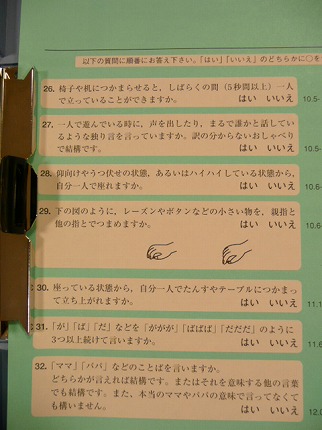 以下の質問に順番にお答え下さい。「はい」「いいえ」のどちらかに○を
26. 椅子や机につかまらせると、しばらくの間（5秒間以上）一人
で立っていることができますか。 はい いいえ
10.5-
27. 一人で遊んでいる時に、声を出したり、まるで誰かと話して
いるような独り言を言っていますか。訳の分からないおしゃべり
で結構です。 はい いいえ
10.5-
28. 仰向けやうつ伏せの状態、あるいはハイハイしている状態から、
自分一人で座れますか。 はい いいえ
10.6-
29. 下の図のように、レーズンやボタンなどの小さい物を、親指と
他の指とでつまめますか。 はい いいえ
10.6
30. 座っている状態から、自分一人でたんすやテーブルにつかまっ
て立ち上がれますか。 はい いいえ
11.1
31. 「が」「ば」「だ」などを「ががが」「ばばば」「だだだ」のように
3つ以上続けて言いますか。 はい いいえ
11.6
32. 「ママ」「パパ」などのことばを言いますか。
どちらかが言えれば結構です。またはそれを意味する他の言葉
でも結構です。また、本当のママやパパの意味で言ってなくて
も構いません。 はい いいえ
12.0